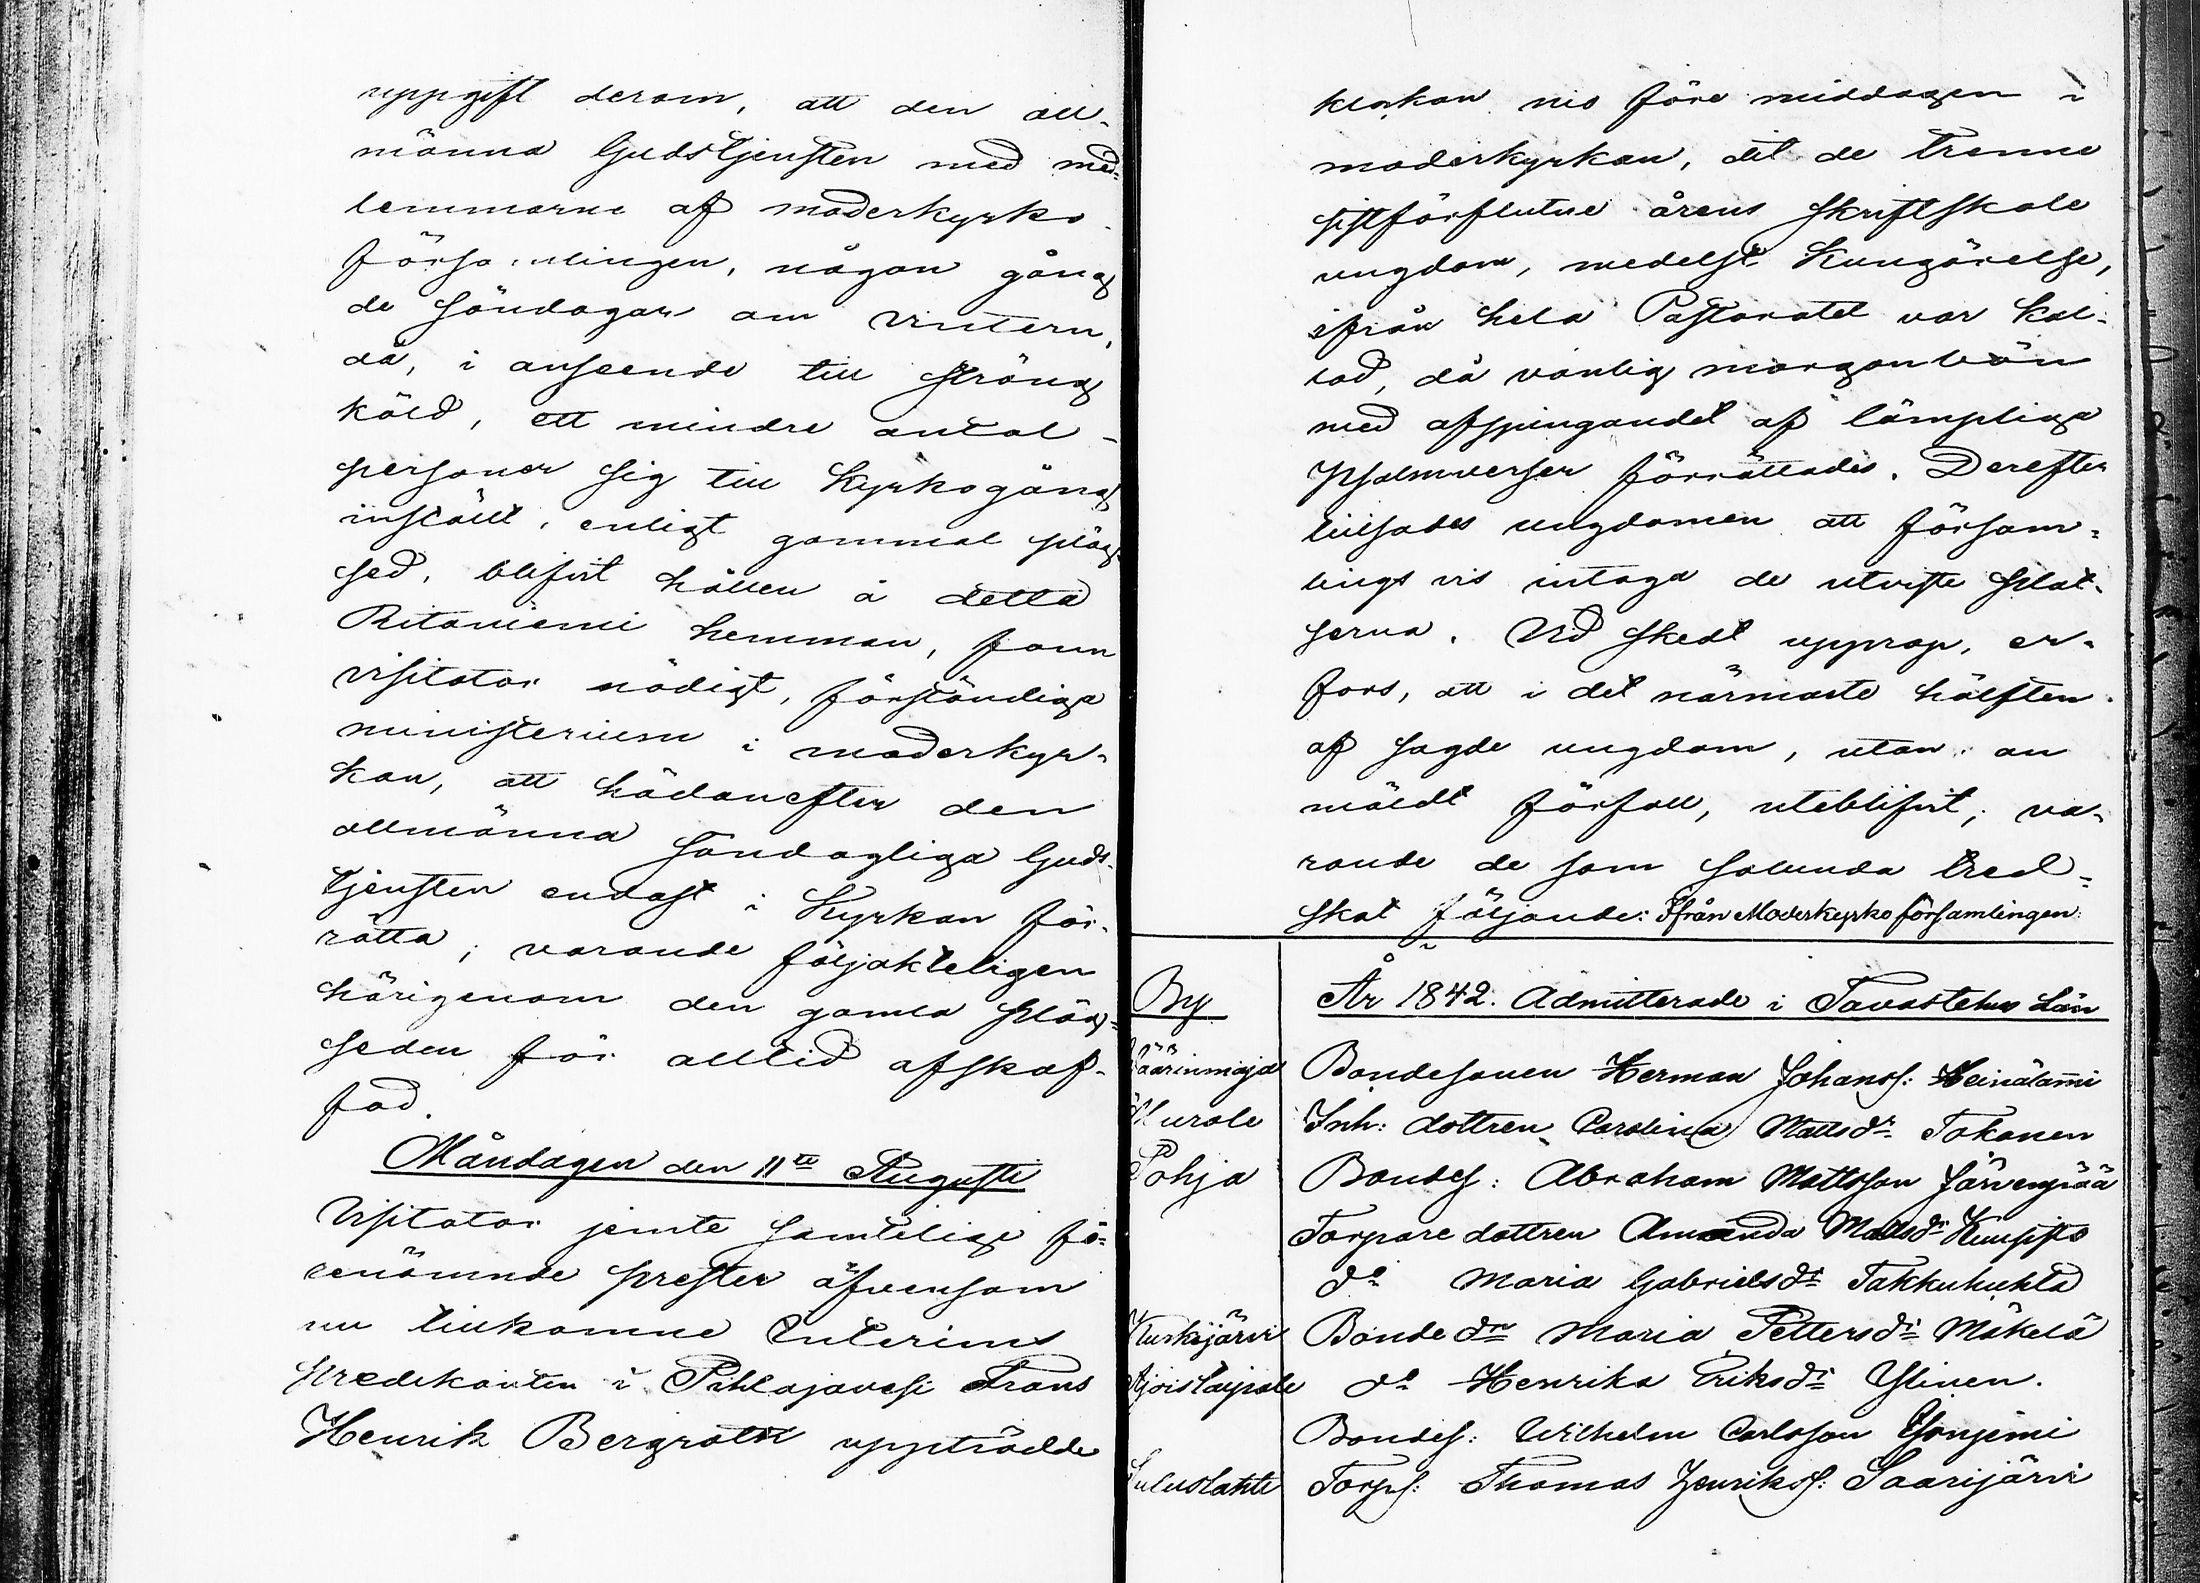 uppgift derom, att den all-
männa Gudstjensten med med-
lemmarne af moderkyrko
församlingen, någon gång
de söndagar om vintern,
då, i anseende till sträng
köld, ett mindre antal
personer sig till Kyrkogång
inställt, enligt gammal pläg-
sed, blifvit hållen å detta
Ritaniemi hemman, fann
visitator nödigt, förständiga
ministerium i moderkyr-
kan, att hädanefter den
allmänna söndagliga Guds-
tjensten endast i Kyrkan för-
rätta; varande följakteligen
härigenom den gamla pläg-
seden för alltid afskaf-
fad.
Måndagen den 11te Augusti
Visitator jemte samtelige fö-
renämnde prester äfvensom
nu tillkomne Interims
predikanten i Pihlajavesi Frans
Henrik Bergroth uppträdde
klockan nio före middagen i
moderkyrkan, dit de trenne
sistförflutne årens skriftskole
ungdom, medelst Kungörelse,
ifrån hela Pastoratet var kal-
lad, då vanlig morgonbön
med afsjungandet af lämpliga
psalmverser förrättades. Derefter
tillsades ungdomen att försam-
lings vis intaga de utviste plat-
serna. Vid skedt upprop, er-
fors, att i det närmaste hälften
af sagde ungdom, utan an
mäldt förfall, uteblifvit; va-
rande de som salunda tred-
skat följande: Ifrån Moderkyrko församlingen:
By År 1842. Admitterade i Tavastehus Län
Väärinmaja Bondesonen Herman Johanss: Heinälammi
Murole Inh: dottren Carolina Mattsdr Tokonen
Pohja Bondes: Abraham Mattsson Järvenpää
Torpare dottren Amanda Mattsdr Kuusisto
do Maria Gabrielsdr Takkuhuhta
Kurkijärvi Bonde dr Maria Pettersdr Mäkelä
do Henrika Eriksdr Ylinen.
Bondes: Wilhelm Carlsson
Torps: Thomas Henrikss: Saarijärvi